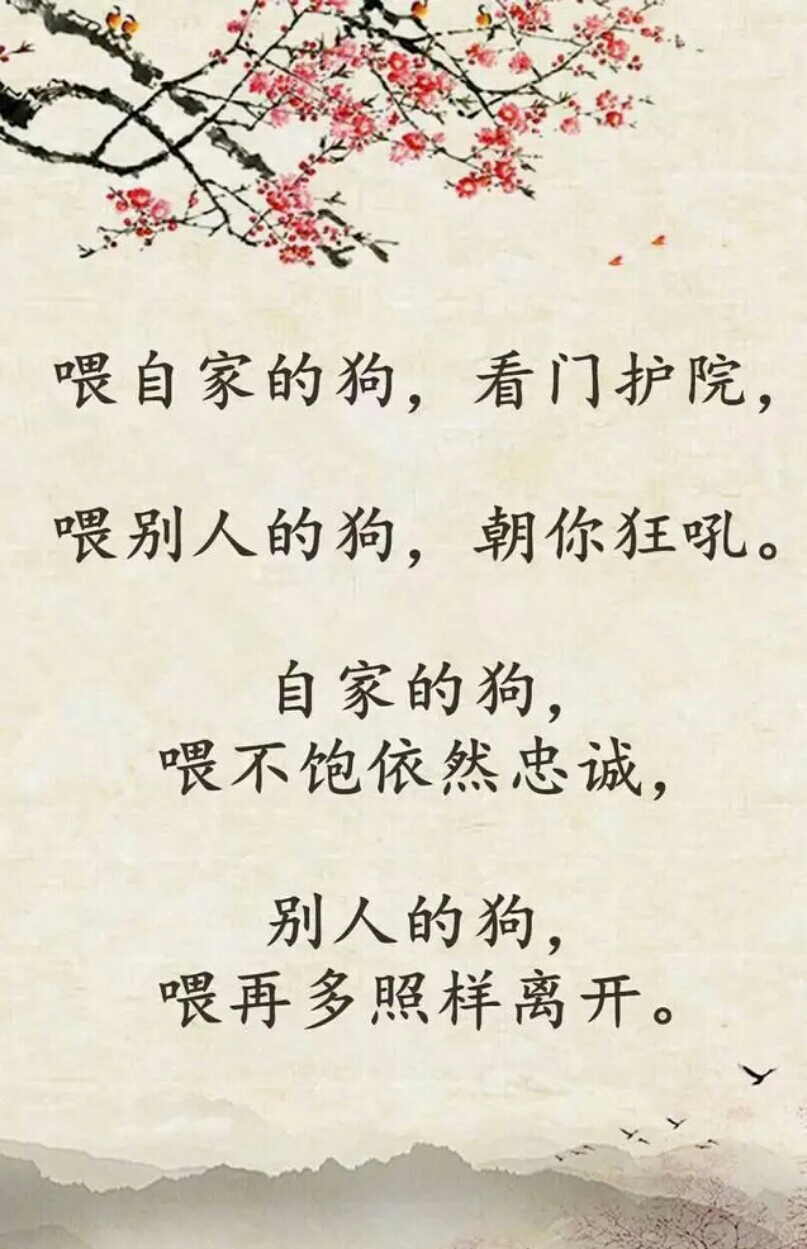 喂自家的狗，看门护院，
喂别人的狗，朝你狂吼。
自家的狗，
喂不饱依然忠诚，
别人的狗，
喂再多照样离开。